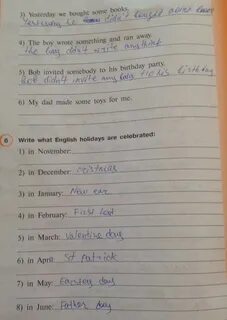 3) Yesterday we bought some books.
Yesterday we didn't bought
4) The boy wrote something and ran away.
the boy didn't write anythink
5) Bob invited somebody to his birthday party.
Bob didn't invite any body to his
6) My dad made some toys for me.
6 Write what English holidays are celebrated:
1) in November:
2) in December:
3) in January: New ear
4) in February: First
5) in March: valentine day
6) in April: St Patrick
7) in May: day
8) in June: Father day